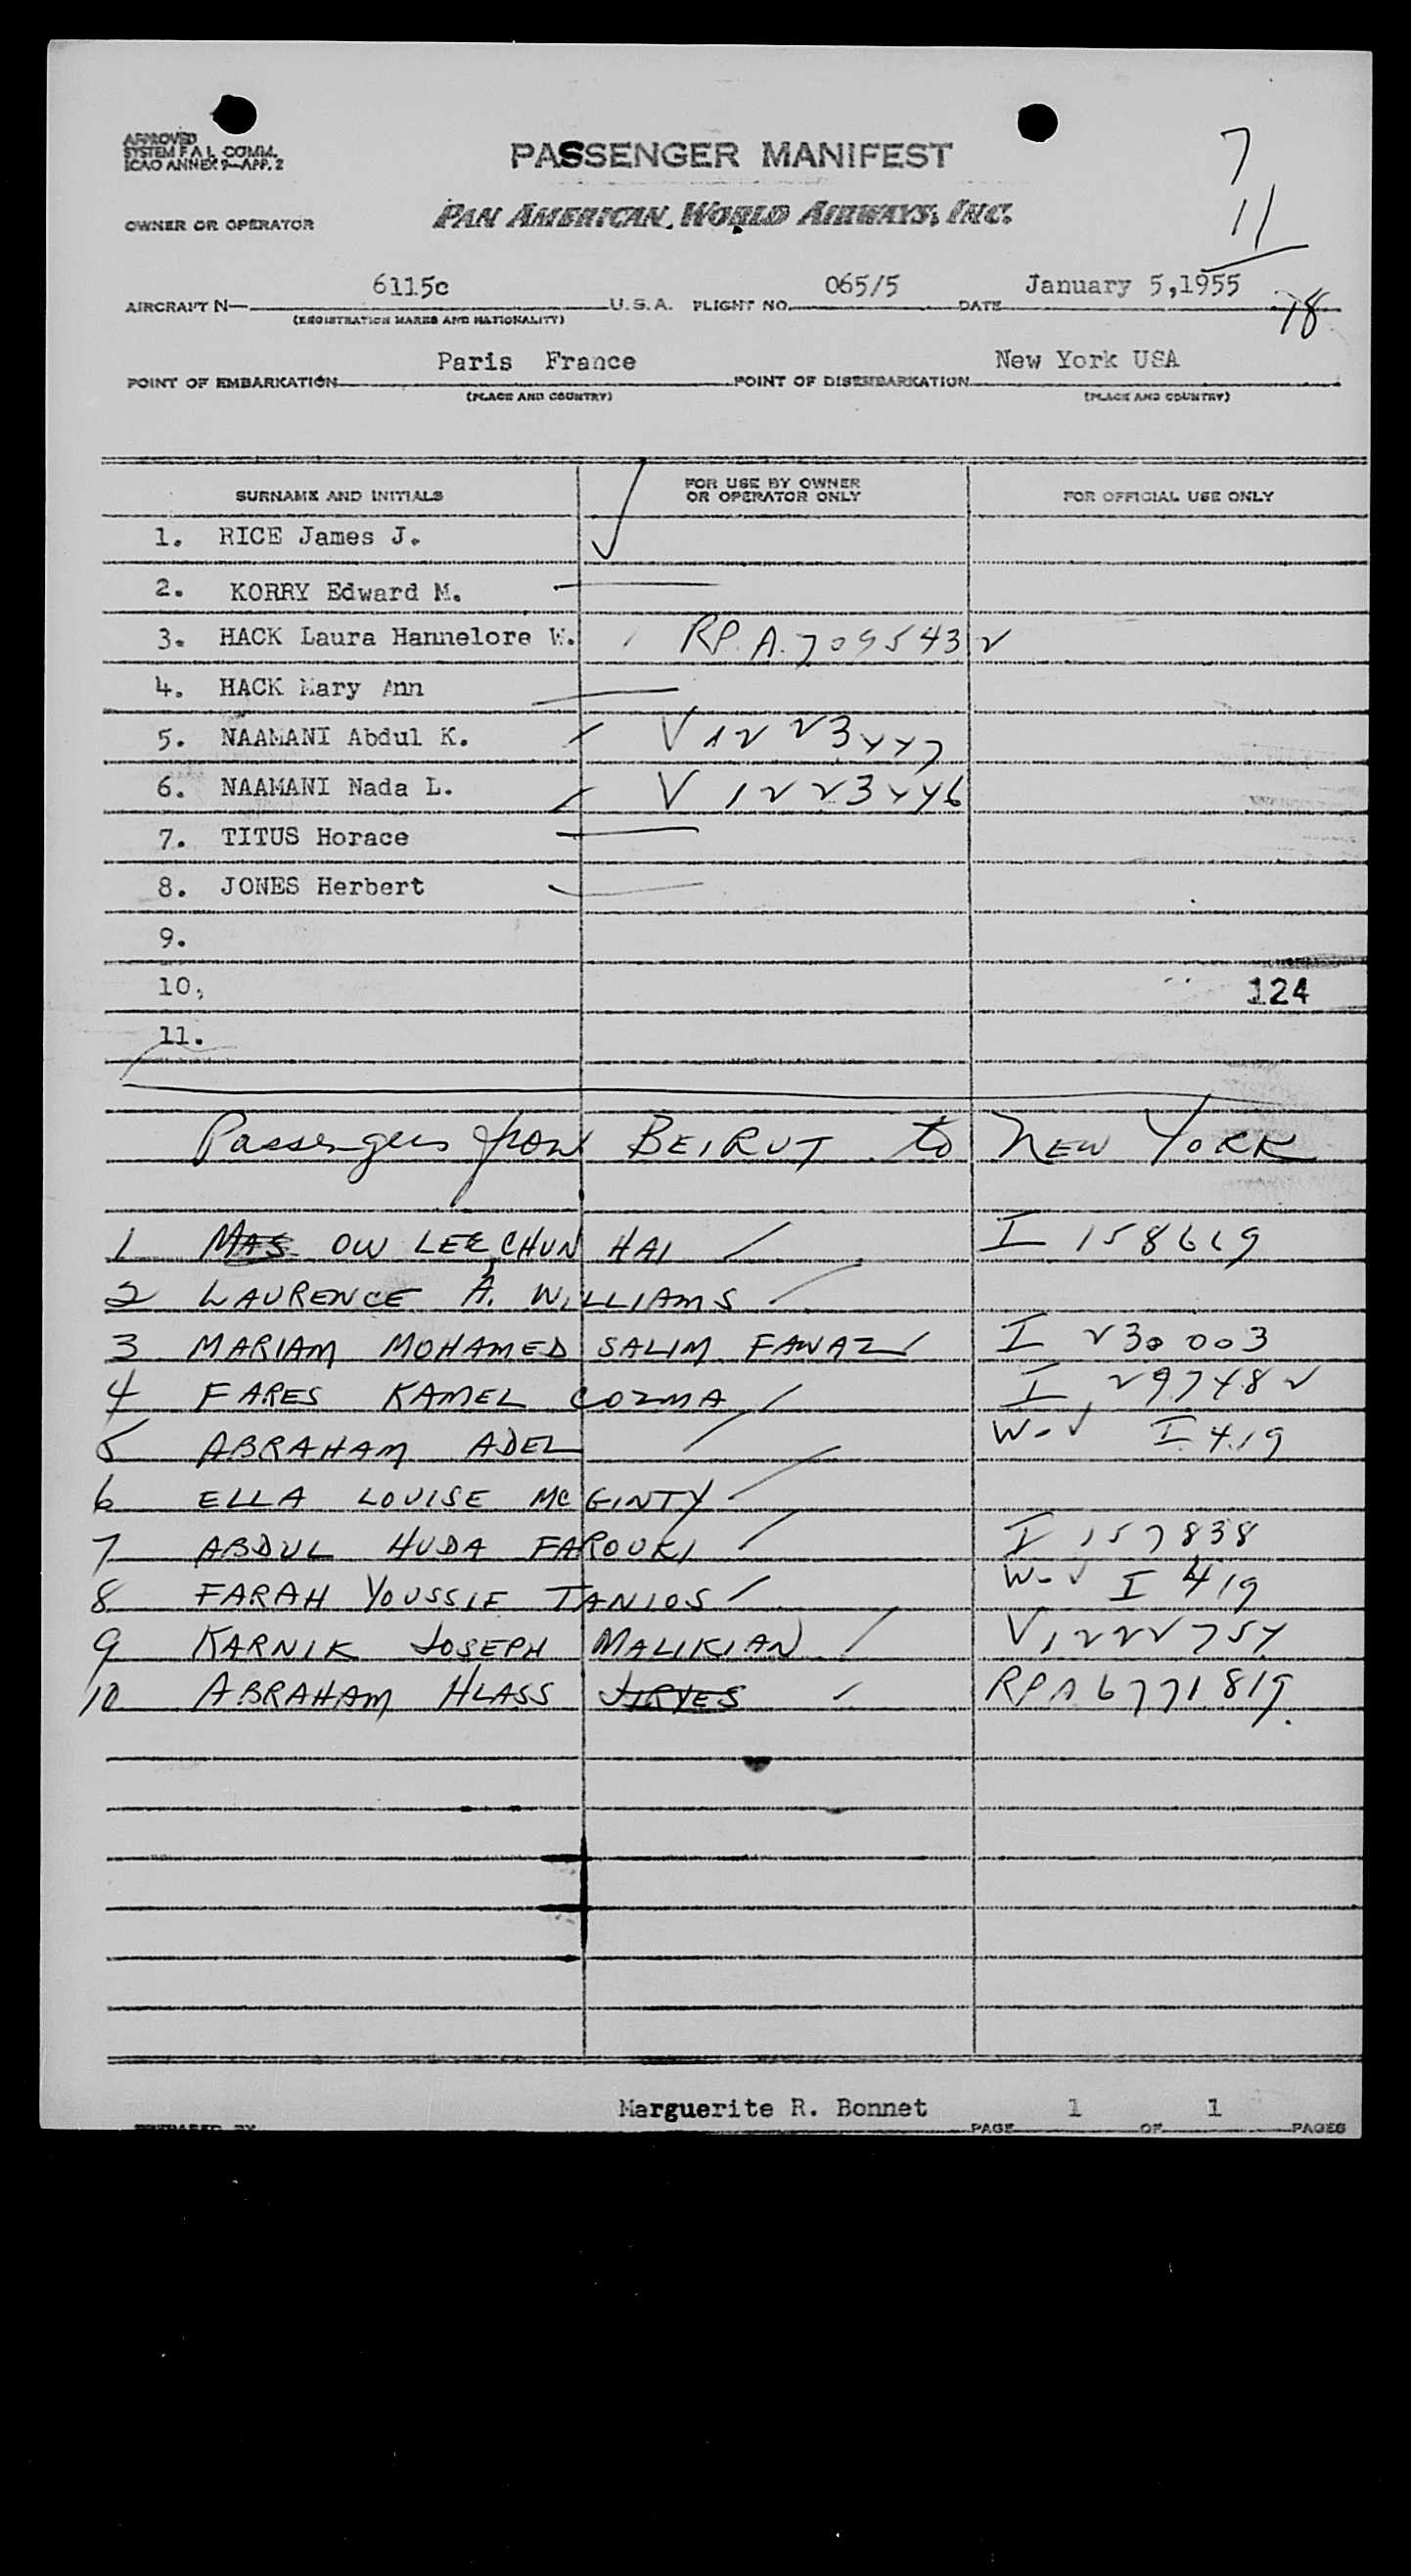 APPROVED
SYSTEM F A L COMM.
ICAO ANNEX 9—APP. 2
PASSENGER MANIFEST
7
11
18
OWNER OR OPERATOR PAN AMERICAN WORLD AIRWAYS, INC.
AIRCRAFT N— 6115c U. S. A. FLIGHT NO. 065/5 DATE January 5,1955
(REGISTRATION MARKS AND NATIONALITY)
POINT OF EMBARKATION Paris France POINT OF DISEMBARKATION New York USA
(PLACE AND COUNTRY) (PLACE AND COUNTRY)
SURNAME AND INITIALS FOR USE BY OWNER OR OPERATOR ONLY FOR OFFICIAL USE ONLY
1. RICE James J.
2. KORRY Edward M.
3. HACK Laura Hannelore W. RP. A. 7095432
4. HACK Mary Ann
5. NAAMANI Abdul K. V 1223447
6. NAAMANI Nada L. V 1223446
7. TITUS Horace
8. JONES Herbert
9.
10. 124
11.
Passengers from BEIRUT to NEW YORK
1 OW LEE, CHUN HAI I 158619
2 LAURENCE A. WILLIAMS
3 MARIAM MOHAMED SALIM FAWAZ I 230003
4 FARES KAMEL COZMA I 297482
5 ABRAHAM ADEL I 419
6 ELLA LOUISE MCGINTY
7 ABDUL HUDA FAROUKI I 157838
8 FARAH YOUSSIE TANIOS I 419
9 KARNIK JOSEPH MALIKIAN V 1222754
10 ABRAHAM HLASS JIRYES RPA 6771819.
PREPARED BY Marguerite R. Bonnet PAGE 1 OF 1 PAGES